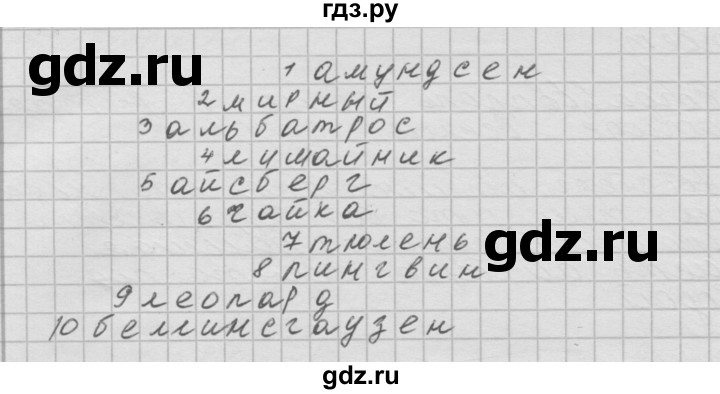 гдз.ру
gdz.ru
1 амундсен
2 мирный
3 альбатрос
4 лишайник
5 айсберг
6 чайка
7 тюлень
gdz.ru
8 пингвин
9 леопард
10 беллинсгаузен
gdz.ru